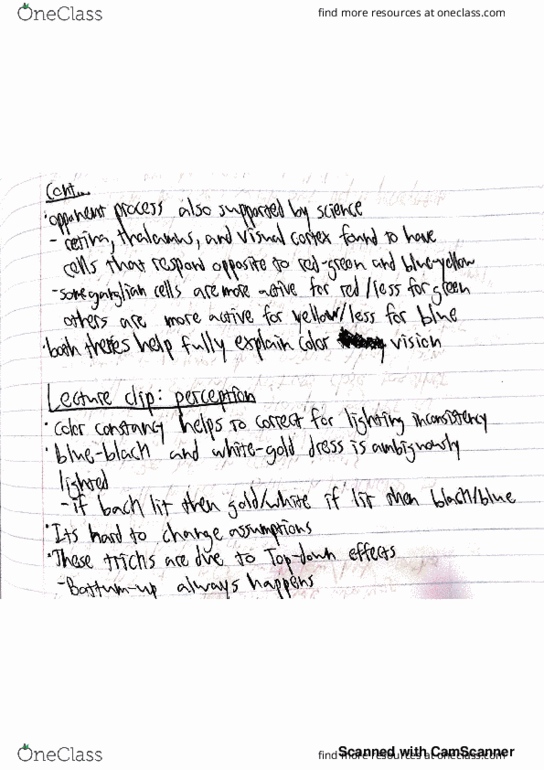 OneClass
find more resources at oneclass.com
Cont...
•opponent process also supported by science
- retina, thalamus, and visual cortex found to have
cells that respond opposite to red-green and blue-yellow
-some ganglian cells are more active for red/less for green
others are more active for yellow/less for blue
•both theries help fully explain color vision
Lecture clip: perception
•color constancy helps to correct for lighting inconsistency
•blue-black and white-gold dress is ambiguously
lighted
-if back lit then gold/white if lit then black/blue
•Its hard to change assumptions
•These tricks are due to Top-down effects
-Bottum-up always happens
OneClass
find more resources at oneclass.com
Scanned with CamScanner